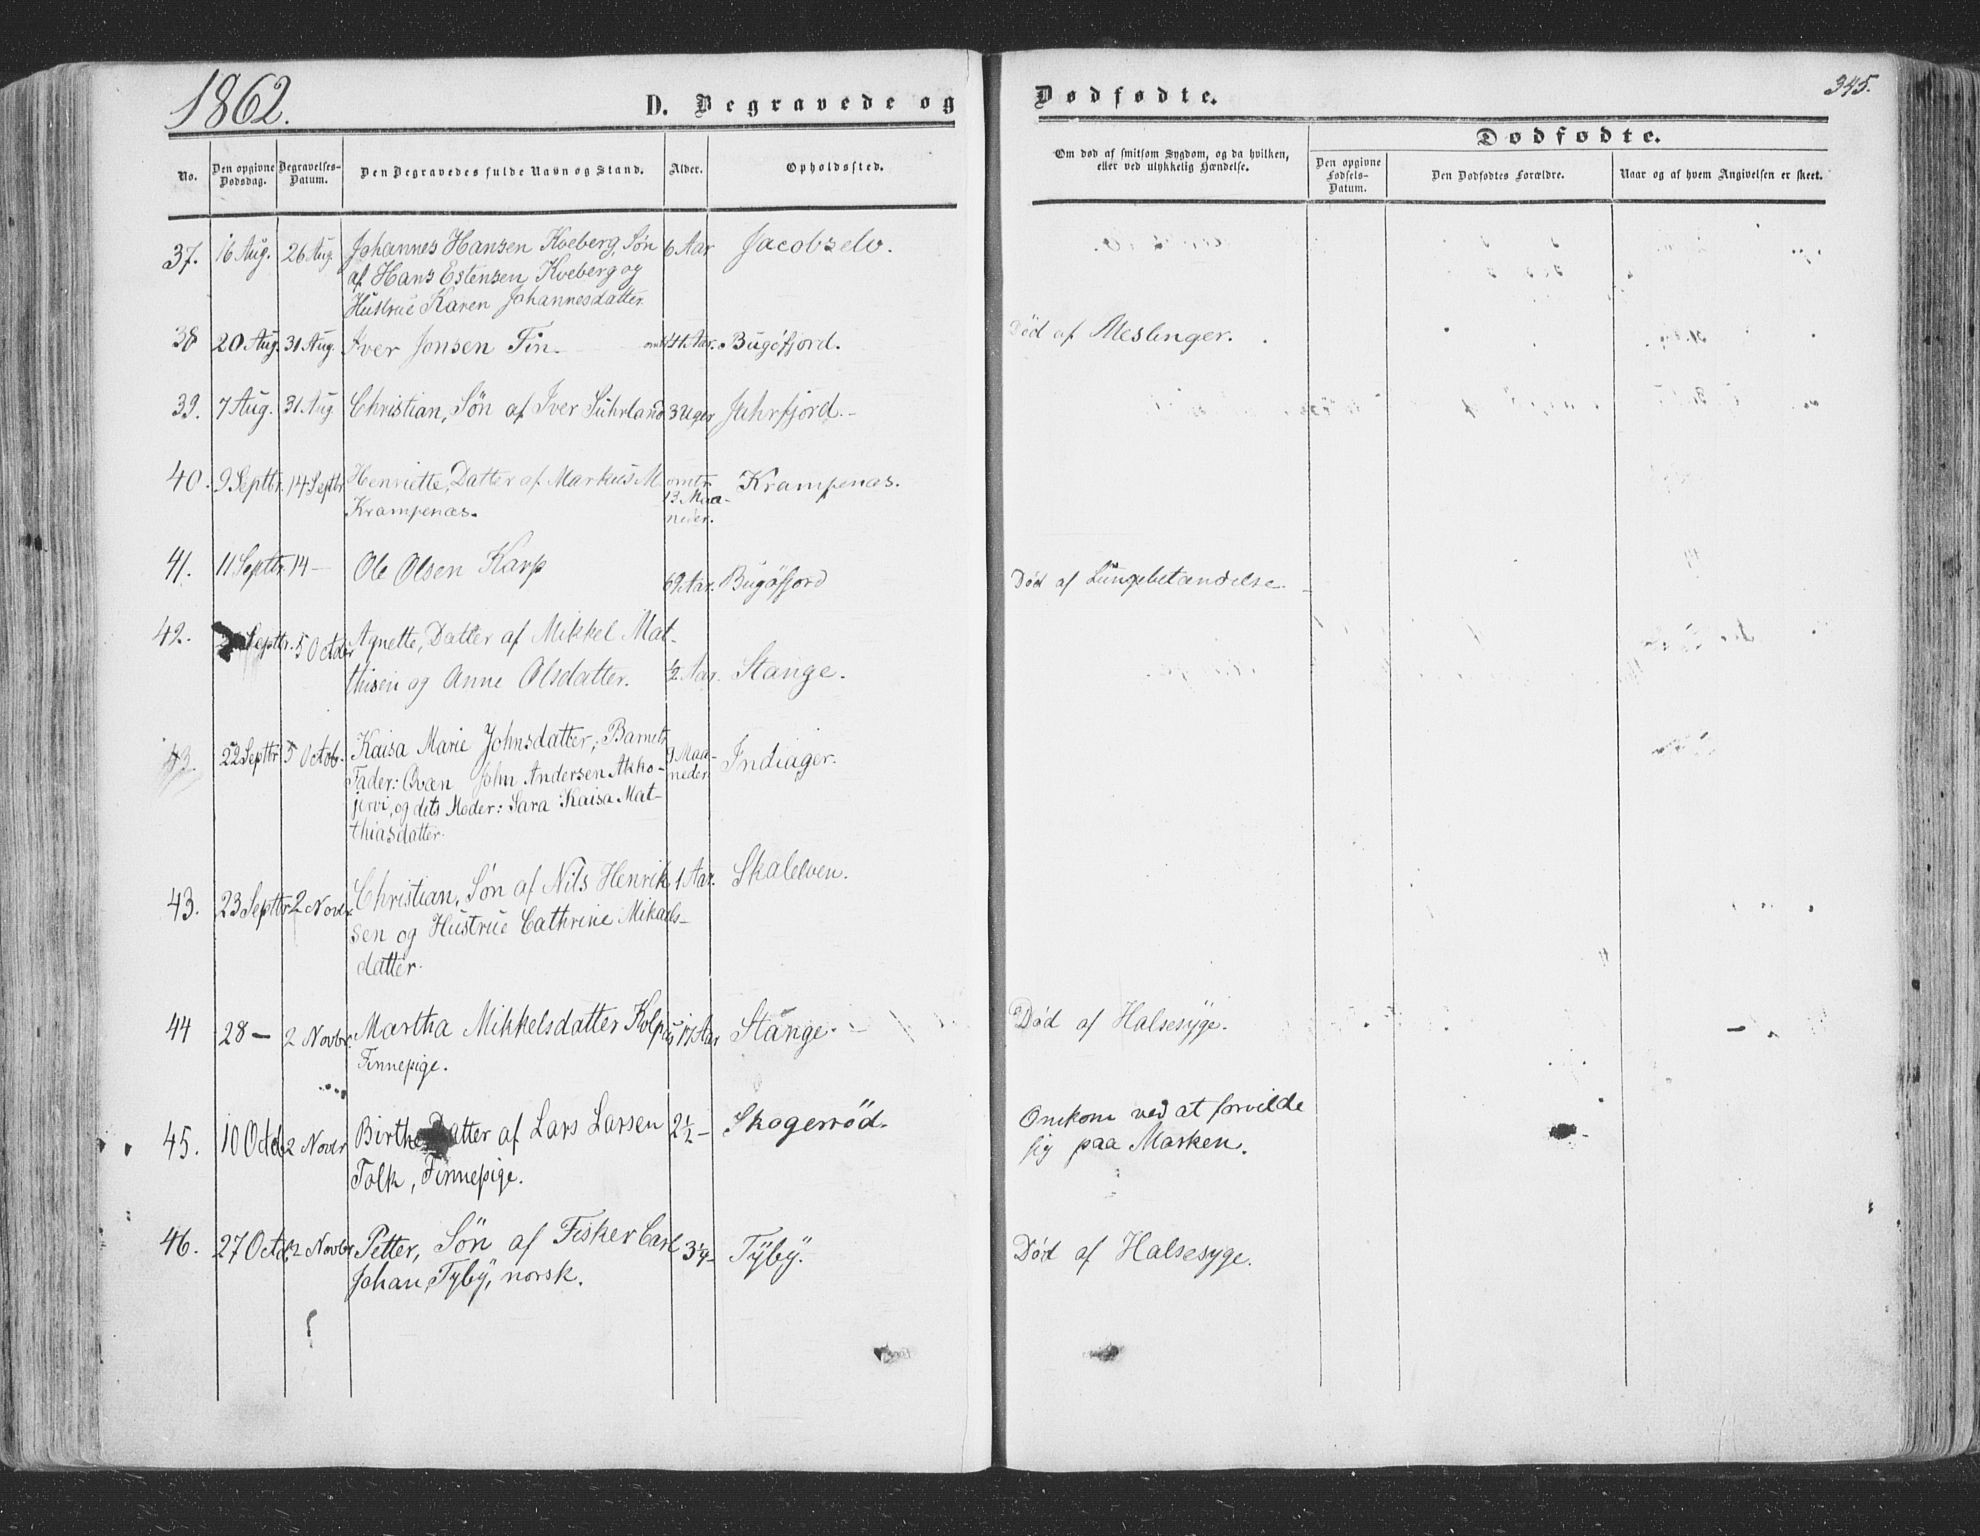 1862.
D. Begravede og
Dødfødte.
345.
Dødfødte.
No.
Den opgivne Dødsdag.
Begravelses-Datum.
Den Begravedes fulde Navn og Stand.
Alder.
Opholdssted.
Om død af smitsom Sygdom, og da hvilken,
eller ved ulykkelig Hændelse.
Den opgivne Fødsels-Datum.
Den Dødfødtes Forældre.
Naar og af hvem Angivelsen er skeet.
37. 16 Aug. 26 Aug. Johannes Hansen Kveberg, Søn 6 Aar Jacobselv.
af Hans Estensen Kveberg og
Hustrue Karen Johannesdatter.
38 20 Aug. 31 Aug. Iver Jonsen Fin. 41 Aar. Bugöfjord. Död af Meslinger.
39. 7 Aug. 31 Aug. Christian, Søn af Iver Suhrland 3 Uger Jahrfjord.
40. 9 Septbr. 14 Septbr. Henriette, Datter af Markus M. omtr. Krampenæs.
Krampenæs. 13 Maa-
neder.
41. 11 Septbr. 14 — Ole Olsen Karp 69 Aar. Bugöfjord Död af Lungebetændelse.
42. Septbr. 5 Octbr Agnette, Datter af Mikkel Mat-
thisen og Anne Olsdatter. ½ Aar. Stange.
43. 22 Septbr 5 Octob. Kaisa Marie Johnsdatter, Barnets 9 Maa- Indiager.
Fader: Qvæn John Andersen Akko- neder
jervi, og dets Moder: Sara Kaisa Mat-
thiasdatter.
43. 23 Septbr 2 Novbr. Christian, Søn af Nils Henrik 1 Aar. Skalelven.
sen og Hustrue Cathrine Mikaels-
datter.
44 28 — 2 Novbr. Martha Mikkelsdatter Kolpus 17 Aar Stange. Död af Halsesyge.
Finnepige.
45. 10 Octb 2 Novbr Birthe Datter af Lars Larsen 2½ — Skogerröd. Omkom ved at forvilde
Talk, Finnepige. sig paa Marken.
46. 27 Octb. 2 Novbr Petter, Søn af Fisker Carl 3¼ — Tyby. Död af Halsesyge.
Johan Tyby, norsk.